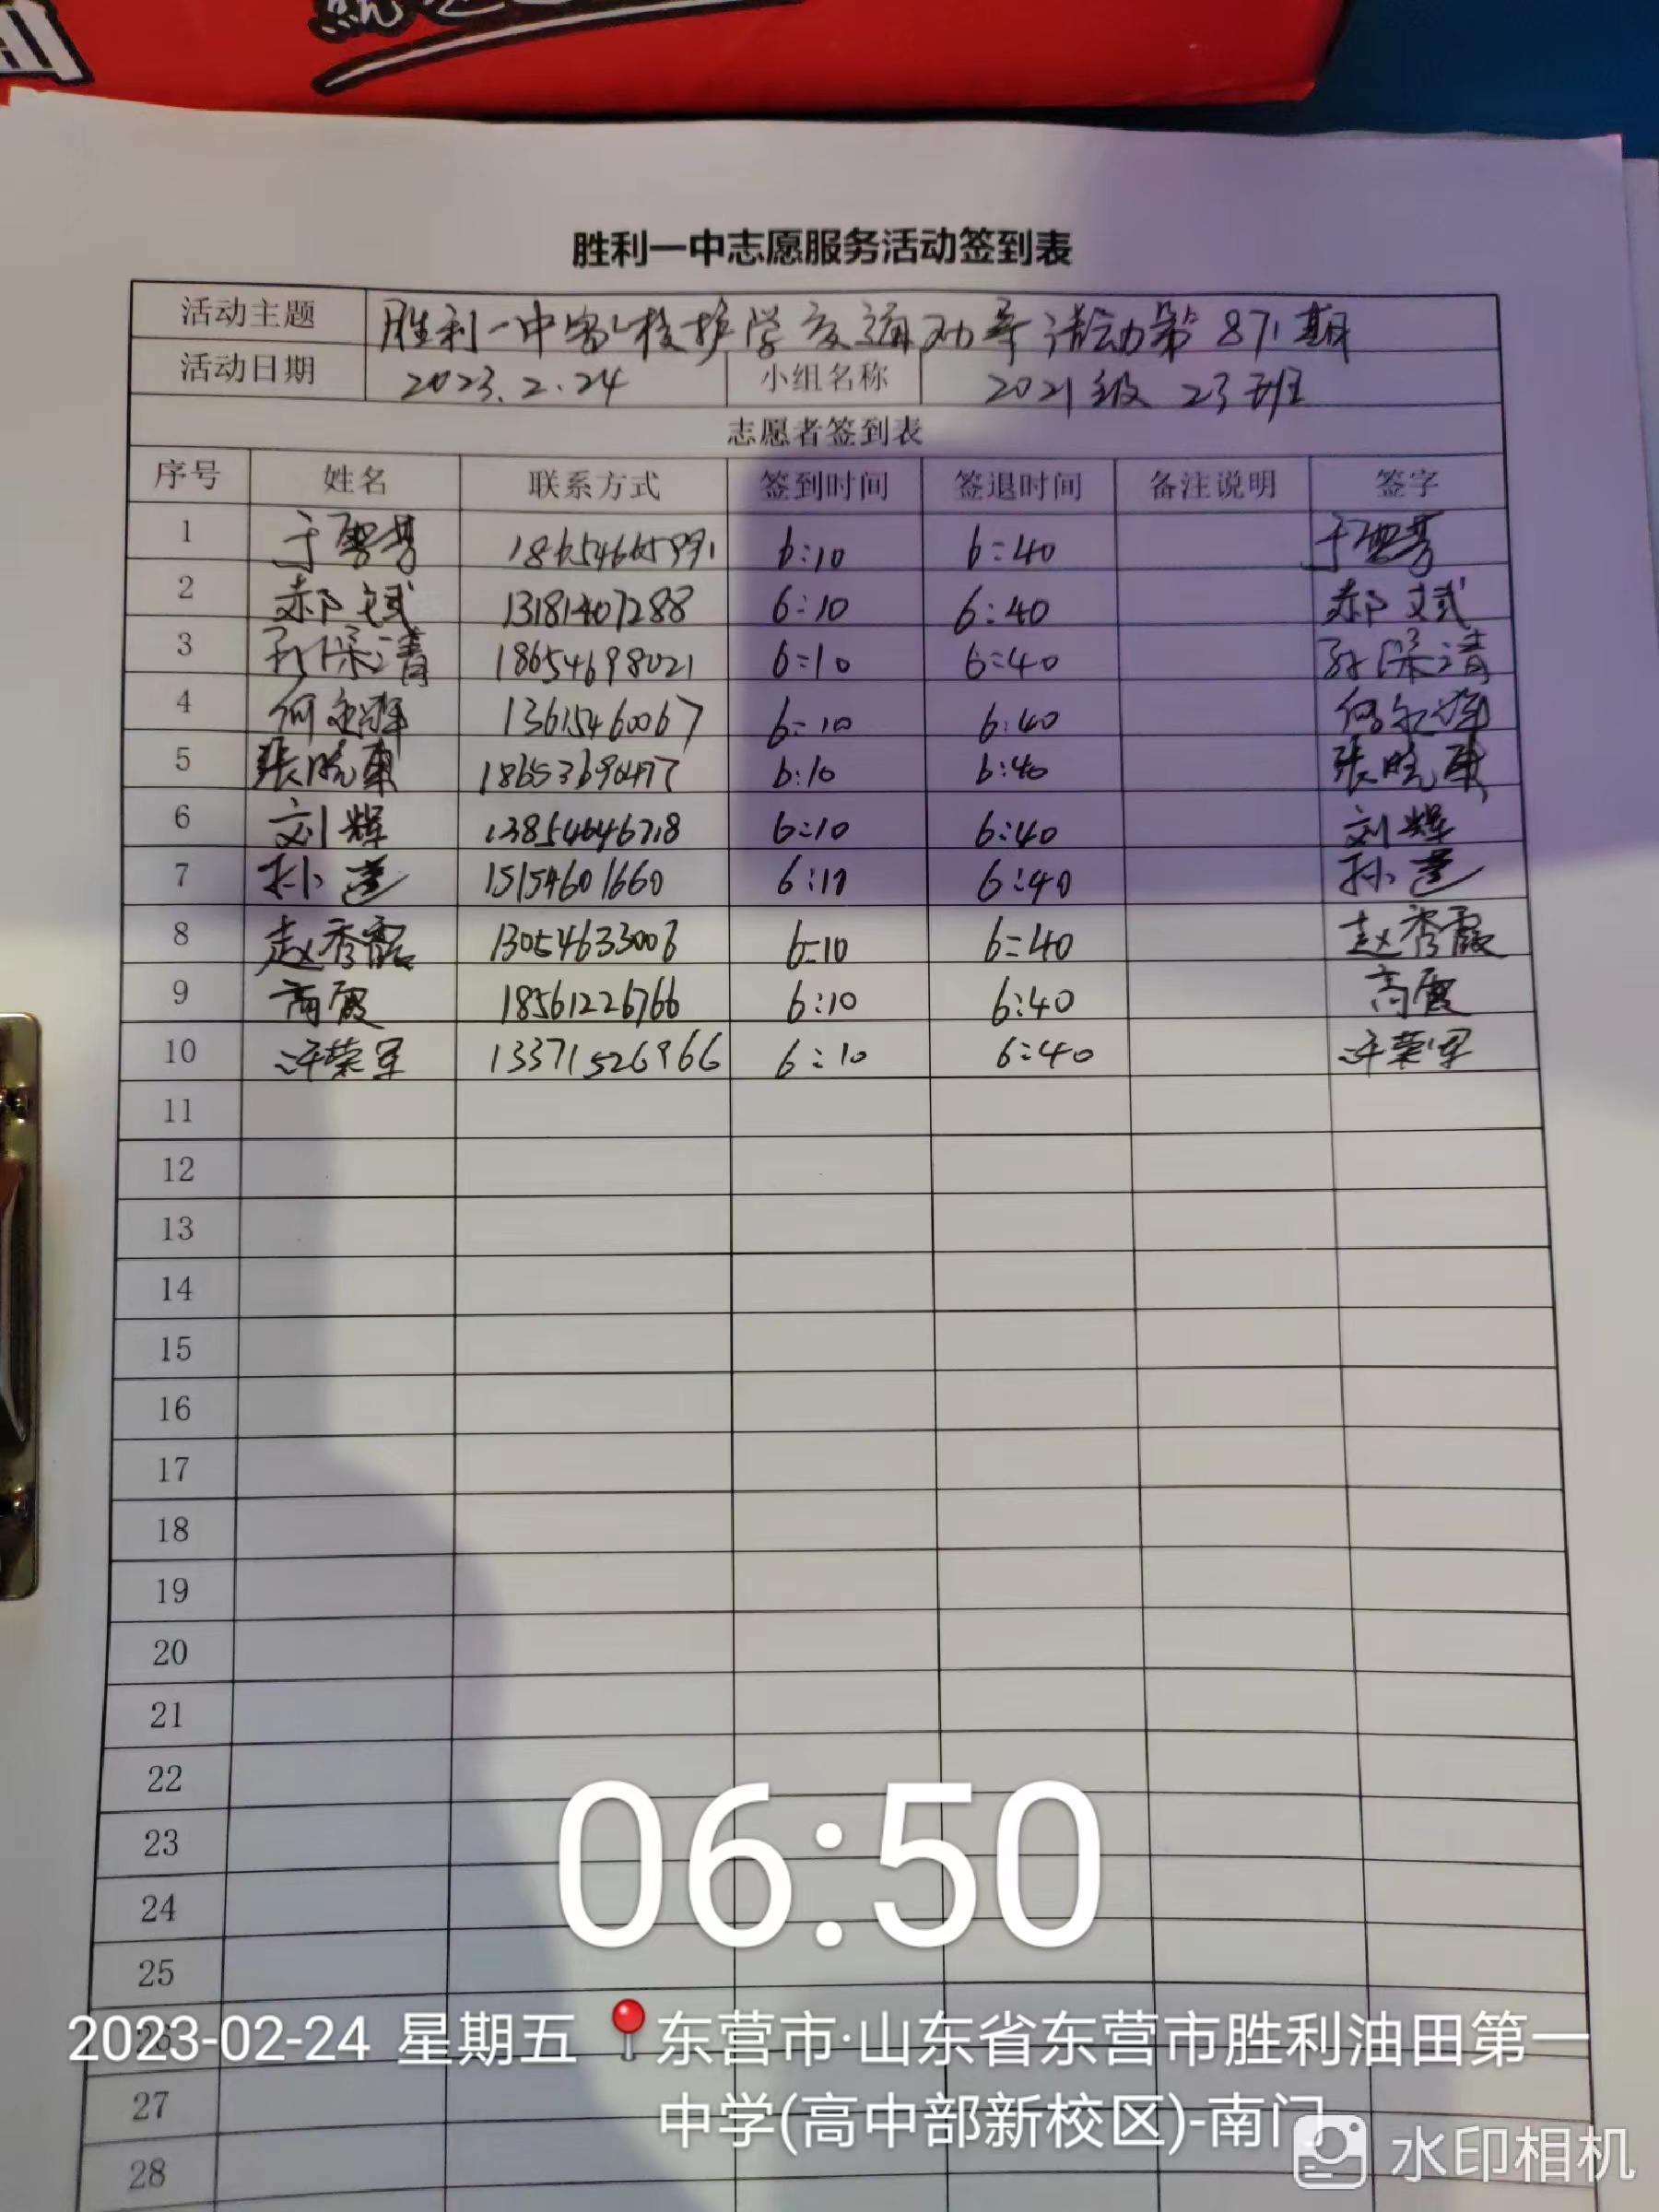 胜利一中志愿服务活动签到表
活动主题 胜利一中家校护学交通劝导活动第871期
活动日期 2023.2.24 小组名称 2021级23班
志愿者签到表
序号 姓名 联系方式 签到时间 签退时间 备注说明 签字
1 于雪芳 18654665991 6:10 6:40 于雪芳
2 郝斌 13181407288 6:10 6:40 郝斌
3 孙保清 18654698021 6:10 6:40 孙保清
4 何 13615460067 6:10 6:40 何
5 张晓东 18653690477 6:10 6:40 张晓东
6 刘辉 13854646718 6:10 6:40 刘辉
7 孙莲 15154601660 6:10 6:40 孙莲
8 赵秀霞 13054633006 6:10 6:40 赵秀霞
9 高霞 18561226766 6:10 6:40 高霞
10 许荣军 13371526966 6:10 6:40 许荣军
11
12
13
14
15
16
17
18
19
20
21
22
23
24
25
26
27
28
06:50
2023-02-24 星期五 东营市·山东省东营市胜利油田第一
中学(高中部新校区)-南门
水印相机